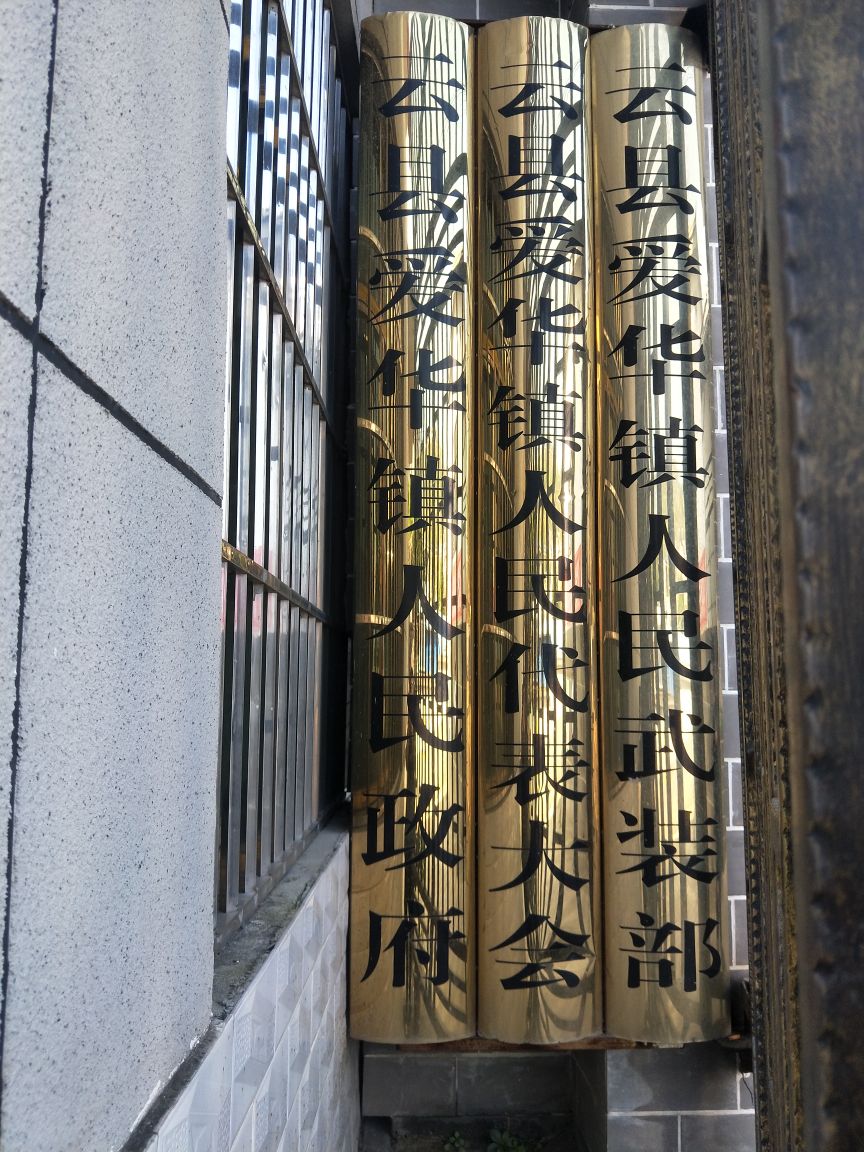 云县爱华镇人民政府
云县爱华镇人民代表大会
云县爱华镇人民武装部